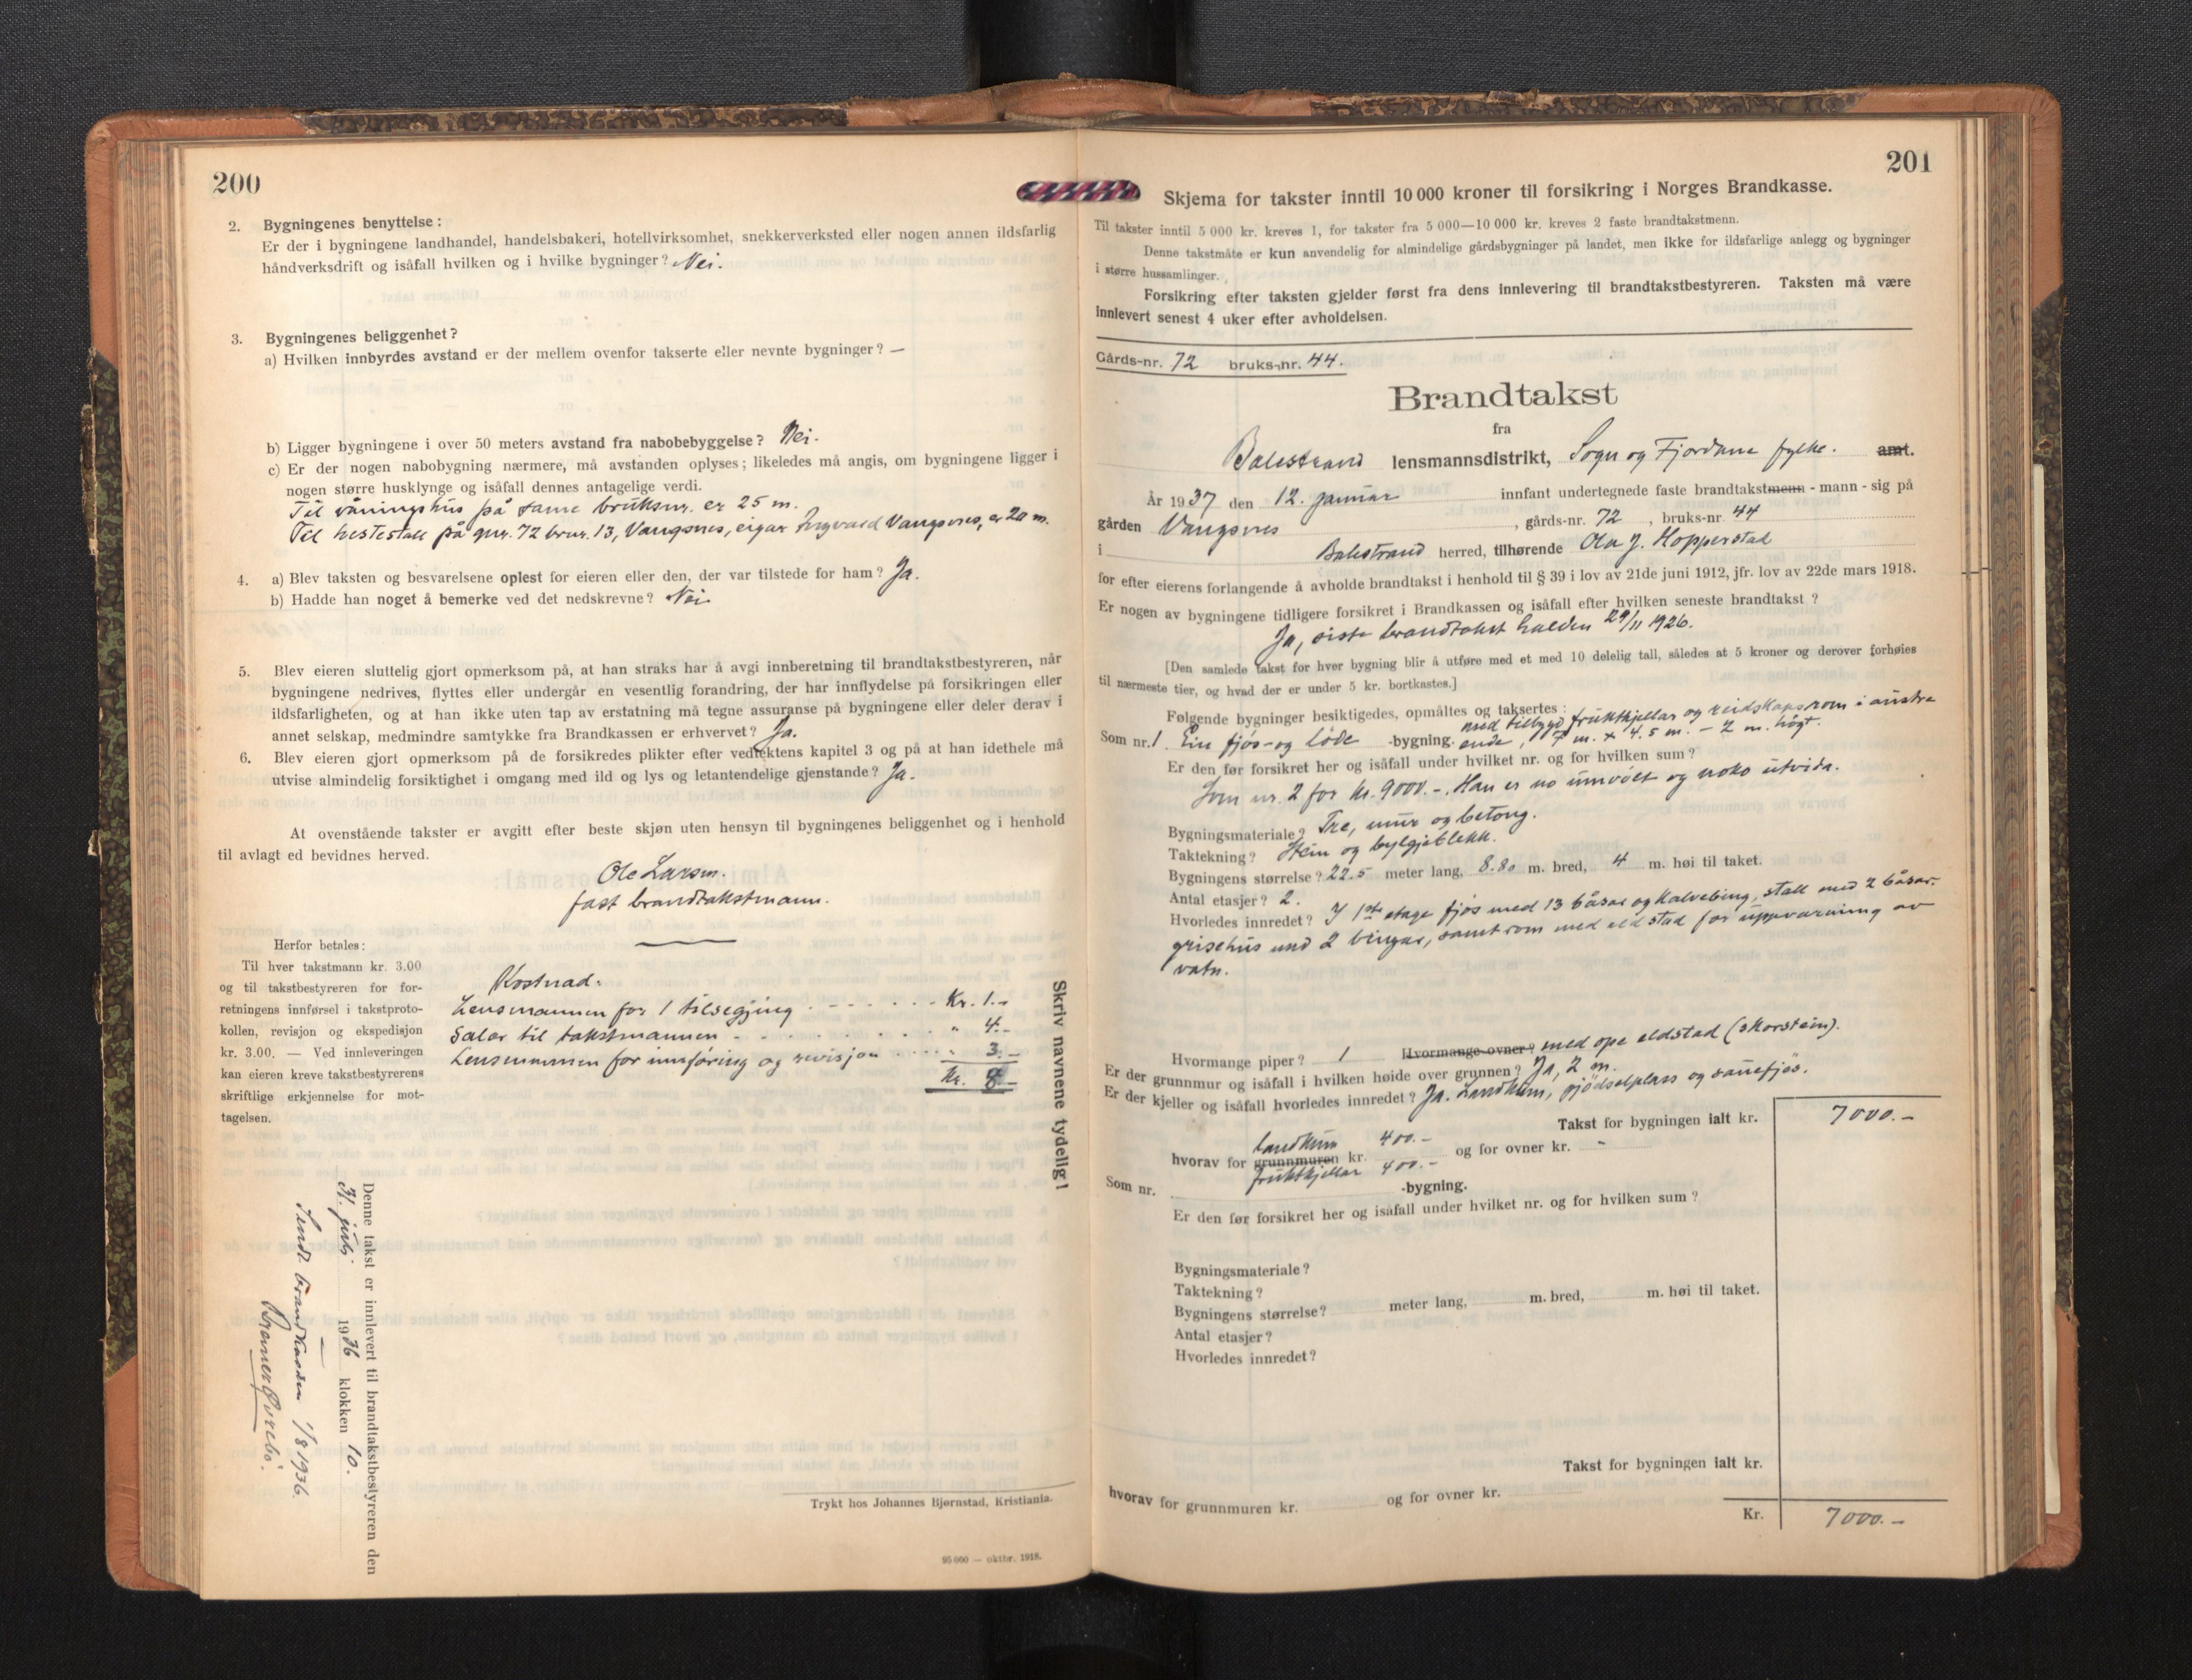 200
2. Bygningenes benyttelse:
Er der i bygningene landhandel, handelsbakeri, hotellvirksomhet, snekkerverksted eller nogen annen ildsfarlig
håndverksdrift og isåfall hvilken og i hvilke bygninger? Nei.
3. Bygningenes beliggenhet?
a) Hvilken innbyrdes avstand er der mellem ovenfor takserte eller nevnte bygninger? —
b) Ligger bygningene i over 50 meters avstand fra nabobebyggelse? Nei.
c) Er der nogen nabobygning nærmere, må avstanden oplyses; likeledes må angis, om bygningene ligger i
nogen større husklynge og isåfall dennes antagelige verdi.
Til våningshus på same bruksnr. er 25 m.
Til hestestall på gnr. 72 brnr. 13, Vangsnes, eigar Ingvald Vangsnes, er 20 m.
4. a) Blev taksten og besvarelsene oplest for eieren eller den, der var tilstede for ham? Ja.
b) Hadde han noget å bemerke ved det nedskrevne? Nei
5. Blev eieren sluttelig gjort opmerksom på, at han straks har å avgi innberetning til brandtakstbestyreren, når
bygningene nedrives, flyttes eller undergår en vesentlig forandring, der har innflydelse på forsikringen eller
ildsfarligheten, og at han ikke uten tap av erstatning må tegne assuranse på bygningene eller deler derav i
annet selskap, medmindre samtykke fra Brandkassen er erhvervet? Ja.
6. Blev eieren gjort opmerksom på de forsikredes plikter efter vedtektens kapitel 3 og på at han idethele må
utvise almindelig forsiktighet i omgang med ild og lys og letantendelige gjenstande? Ja.
At ovenstående takster er avgitt efter beste skjøn uten hensyn til bygningenes beliggenhet og i henhold
til avlagt ed bevidnes herved.
Ole Larsen.
fast brandtakstmann.
Herfor betales:
Til hver takstmann kr. 3.00
og til takstbestyreren for for-
retningens innførsel i takstproto-
kollen, revisjon og ekspedisjon
kr. 3.00. — Ved innleveringen
kan eieren kreve takstbestyrerens
skriftlige erkjennelse for mot-
tagelsen.
Kostnad:
Lensmannen for 1 tilsegjing . - - . . . . Kr. 1.-
Salar til takstmannen - - . . . . . " 4.-
Lensmannen for innføring og revisjon . . . . " 3.-
Kr. 8.-
Skriv navnene tydelig!
Denne takst er innlevert til brandtakstbestyreren den
31. juli 1936 klokken 10.
Sendt brandkassen 1/8 1936.
Trykt hos Johannes Bjørnstad, Kristiania.
95 000 — oktbr. 1918.
201
Skjema for takster inntil 10 000 kroner til forsikring i Norges Brandkasse.
Til takster inntil 5 000 kr. kreves 1, for takster fra 5 000—10 000 kr. kreves 2 faste brandtakstmenn.
Denne takstmåte er kun anvendelig for almindelige gårdsbygninger på landet, men ikke for ildsfarlige anlegg og bygninger
i større hussamlinger.
Forsikring efter taksten gjelder først fra dens innlevering til brandtakstbestyreren. Taksten må være
innlevert senest 4 uker efter avholdelsen.
Gårds-nr. 72 bruks-nr. 44.
Brandtakst
fra
Balestrand lensmannsdistrikt, Sogn og Fjordane fylke. amt.
År 1937 den 12. januar innfant undertegnede faste brandtakstmenn - mann - sig på
gården Vangsnes, gårds-nr. 72, bruks-nr 44
i Balestrand herred, tilhørende Ola J. Hopperstad
for efter eierens forlangende å avholde brandtakst i henhold til § 39 i lov av 21de juni 1912, jfr. lov av 22de mars 1918.
Er nogen av bygningene tidligere forsikret i Brandkassen og isåfall efter hvilken seneste brandtakst?
Ja, siste brandtakst halden 29/11 1926.
[Den samlede takst for hver bygning blir å utføre med et med 10 delelig tall, således at 5 kroner og derover forhøies
til nærmeste tier, og hvad der er under 5 kr. bortkastes.]
Følgende bygninger besiktigedes, opmåltes og taksertes:
med tilbygd fruktkjellar og reidskapsrom i austre
Som nr. 1. Ein fjøs- og løde -bygning. ende, 7 m. x 4.5 m. - 2 m. høgt.
Er den før forsikret her og isåfall under hvilket nr. og for hvilken sum?
Som nr. 2 for kr. 9000.-. Han er no umvølt og noko utvida.
Bygningsmateriale? Tre, mur og betong.
Taktekning? Stein og bylgjeblekk.
Bygningens størrelse? 22.5 meter lang, 8.80 m. bred, 4 m. høi til taket.
Antal etasjer? 2.
Hvorledes innredet? I 1ste etage fjøs med 13 båsar og kalvebing, stall med 2 båsar.
grisehus med 2 bingar, samt rom med eldstad for uppvarming av
vatn.
Hvormange piper? 1 Hvormange ovner? med ope eldstad (skorstein).
Er der grunnmur og isåfall i hvilken høide over grunnen? Ja, 2 m.
Er der kjeller og isåfall hvorledes innredet? Ja. Landkum, gjødselplass og sauefjøs.
Takst for bygningen ialt kr. 7000.-
landkum 400.-
hvorav for grunnmuren kr. og for ovner kr. -
fruktkjellar 400.-
Som nr. -bygning.
Er den før forsikret her og isåfall under hvilket nr. og for hvilken sum?
Bygningsmateriale?
Taktekning?
Bygningens størrelse? meter lang, m. bred, m. høi til taket.
Antal etasjer?
Hvorledes innredet?
Takst for bygningen ialt kr.
hvorav for grunnmuren kr. og for ovner kr.
Kr. 7000.-